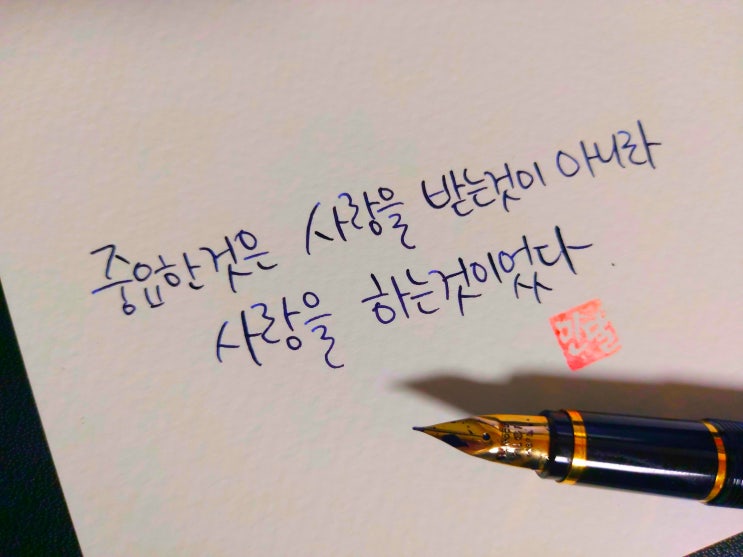 중요한것은 사랑을 받는것이 아니라
사랑을 하는것이었다.